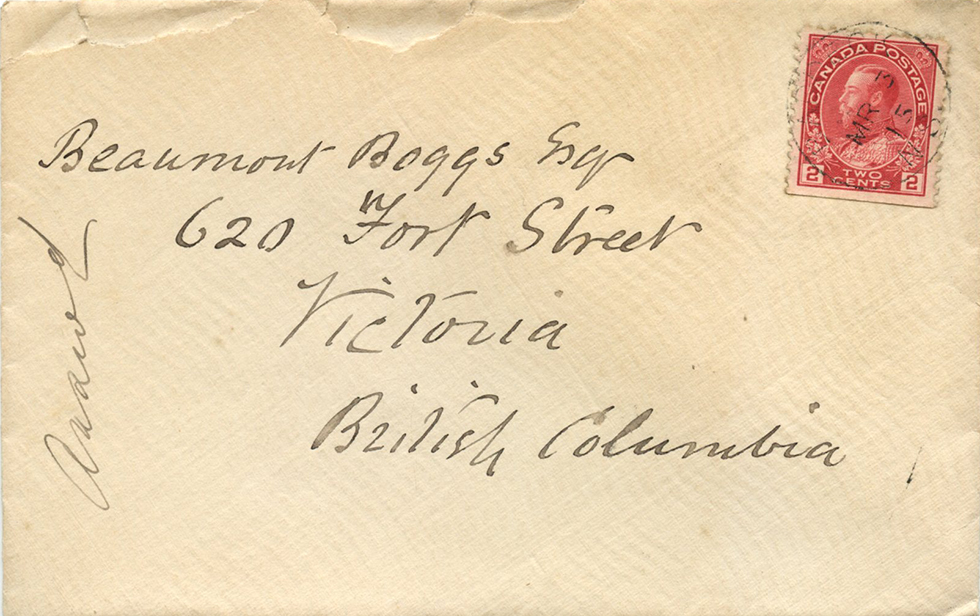 Beaumont Boggs Esqr
620 Fort Street
Victoria
British Columbia
CANADA POSTAGE
2 TWO CENTS 2
MR 3
15